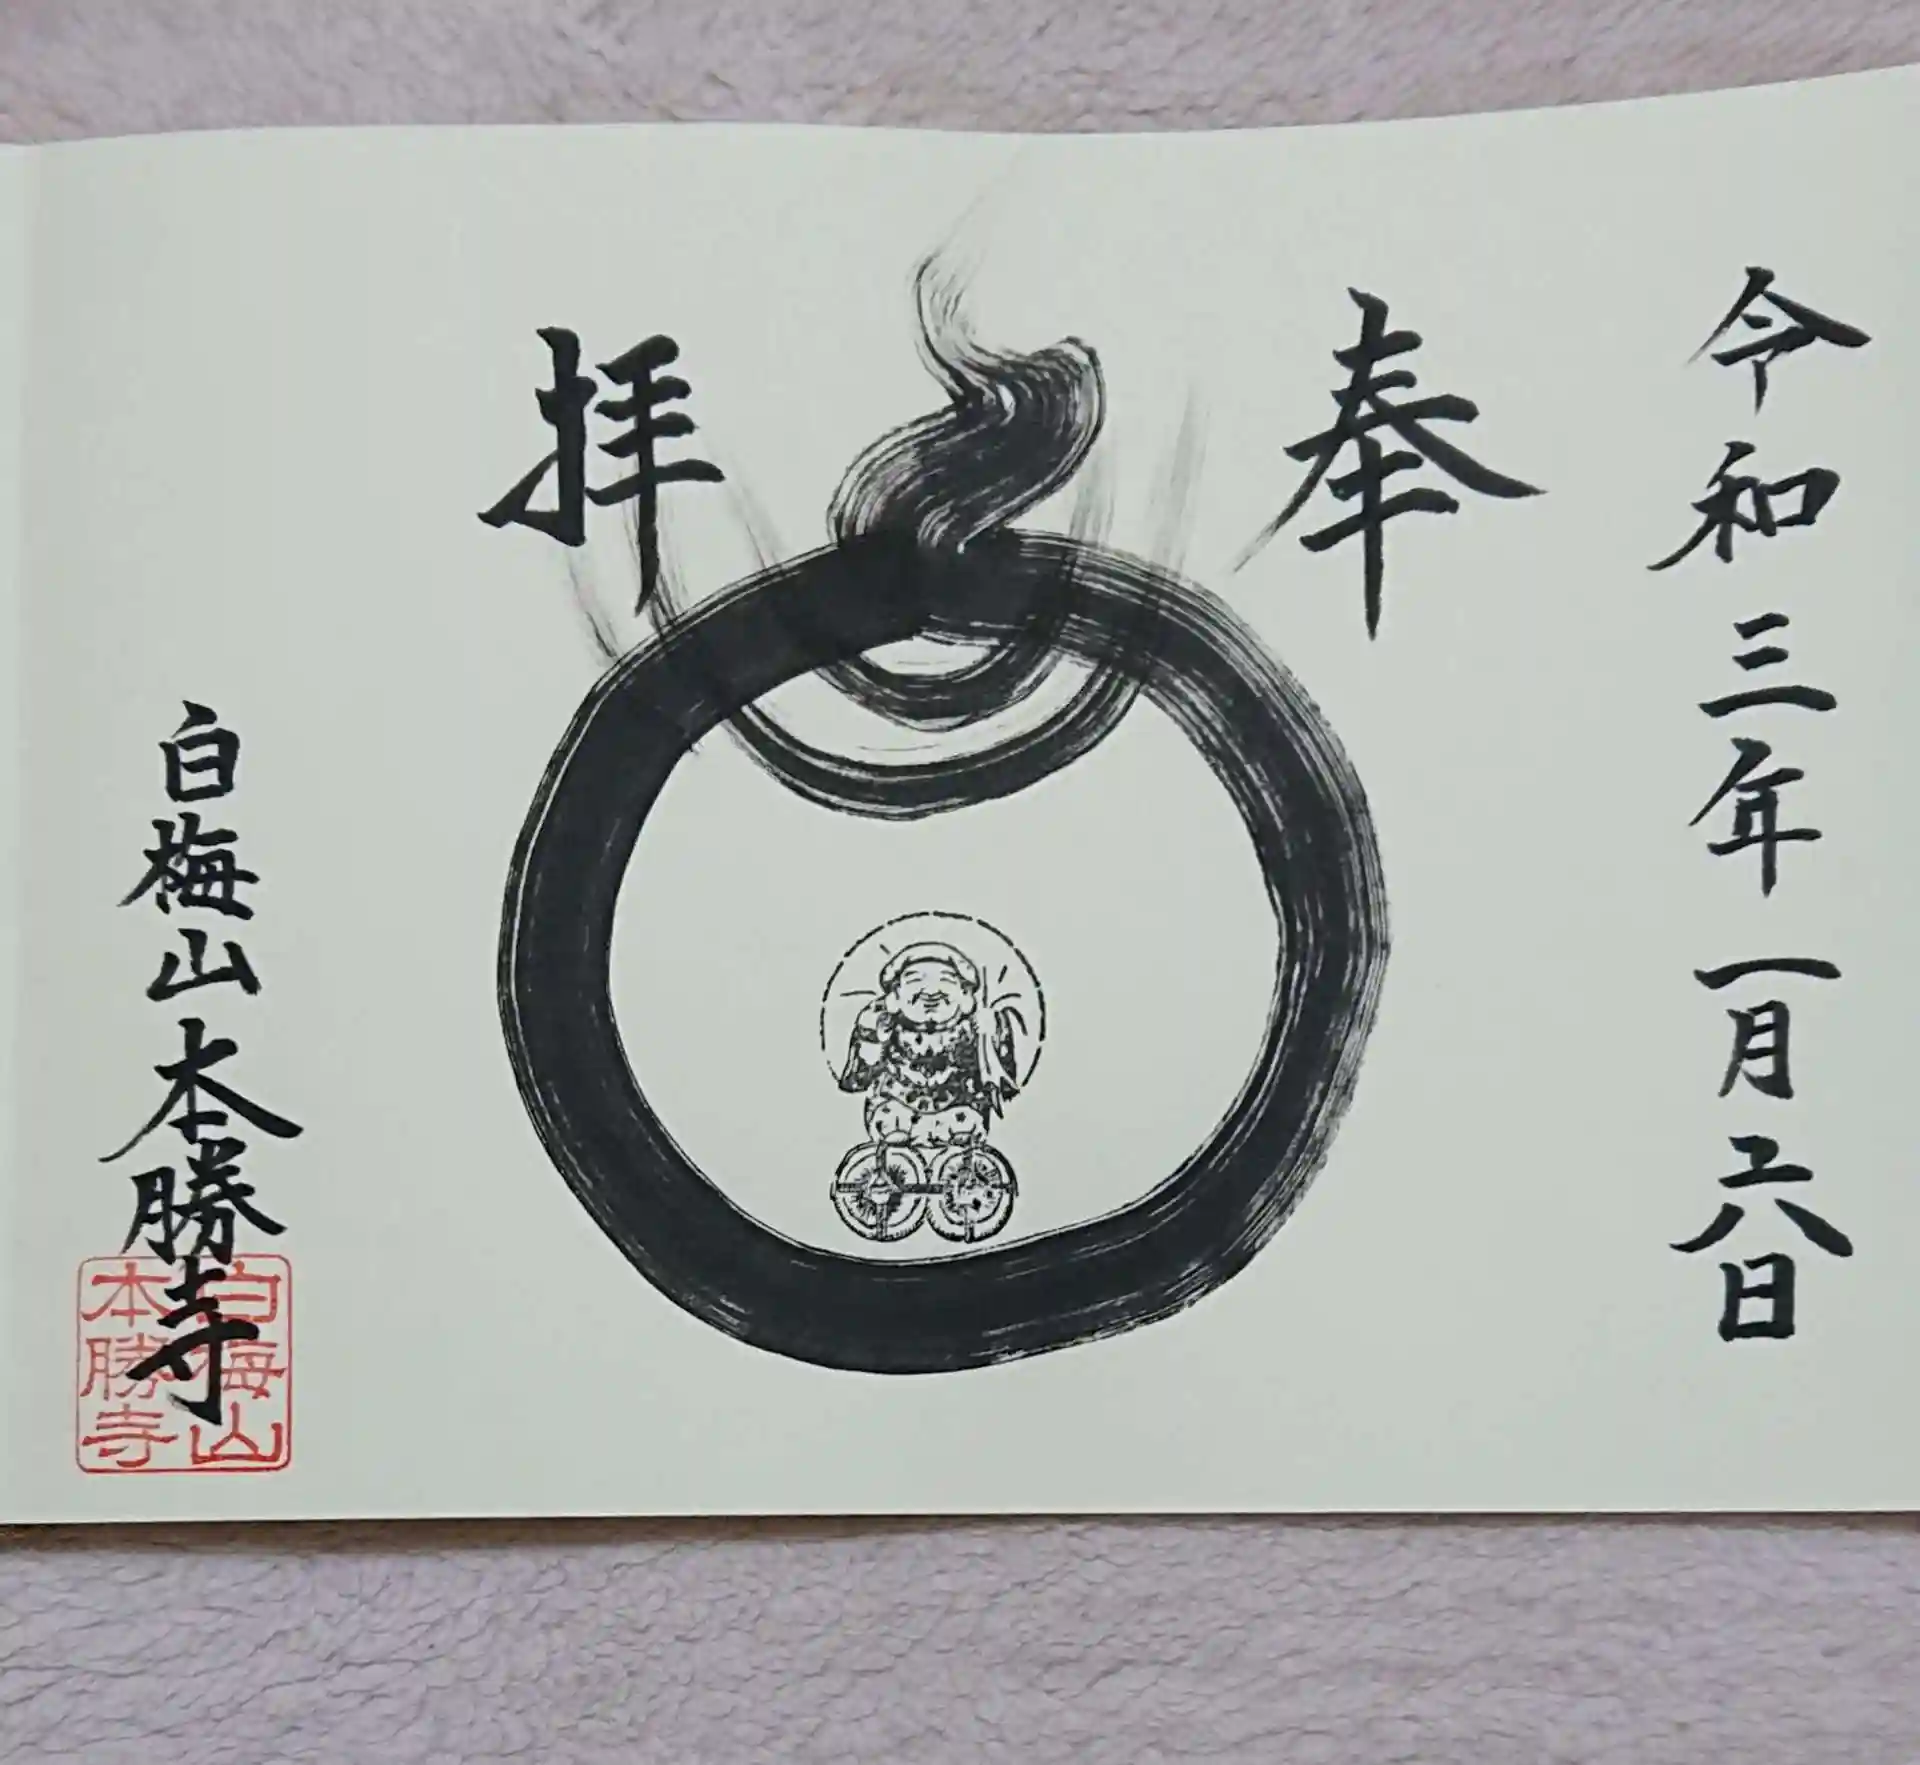 令和三年一月一六日
奉拝
白梅山本勝寺
白梅山
本勝寺